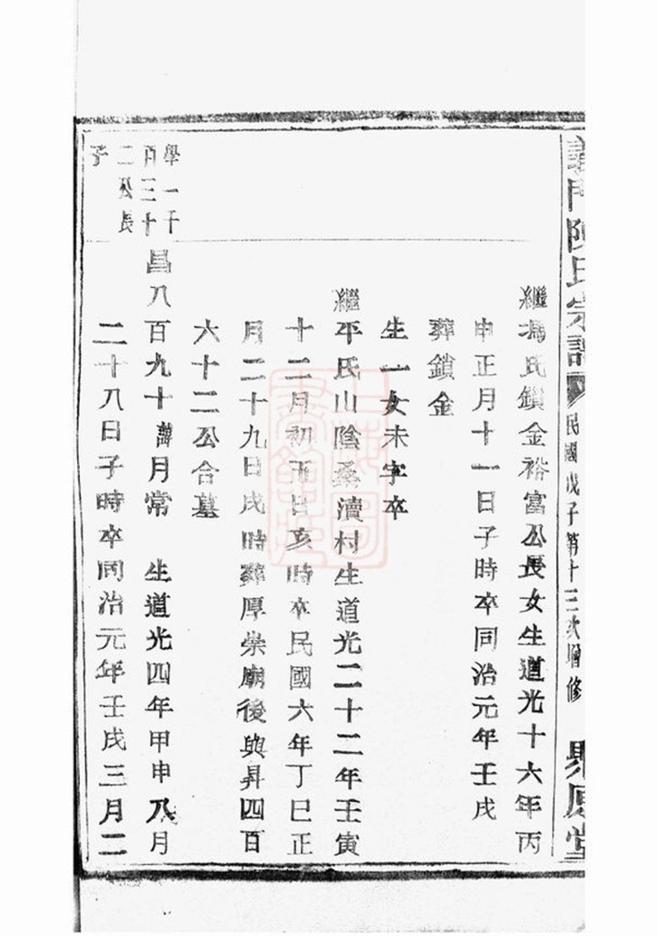 義門陳氏宗譜
民國戊子第十三次增修
聚原堂
繼馮氏鎖金裕富公長女生道光十六年丙
申正月十一日子時卒同治元年壬戌
葬鎖金
生一女未字卒
繼平氏山陰桑瀆村生道光二十二年壬寅
十二月初五日亥時卒民國六年丁巳正
月二十九日戌時葬厚崇廟後與昇四百
六十二公合墓
學一千
百三十
二公長
子
昌八百九十 諱月常 生道光四年甲申八月
二十八日子時卒同治元年壬戌三月二